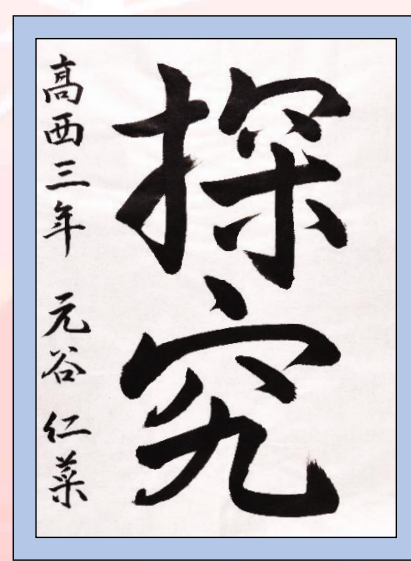 探究
高西三年 元谷 仁菜